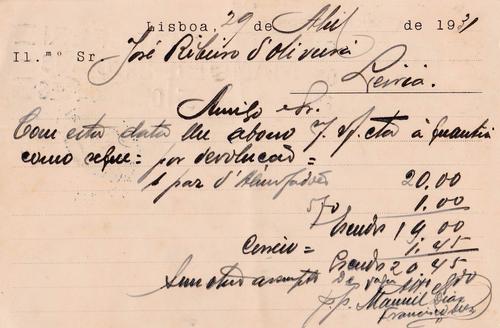 Lisboa, 29 de Abril de 1931
Il.mo Sr. José Ribeiro d'Oliveira
Leiria.
Amigo e Sr.
Com esta data lhe abono s/ cta a quantia
como segue = por devolução =
1 par d'Almofadas 20.00
5% 1.00
Escudos 19.00
Correio = 1.45
Escudos 20.45
Sem outro assumpto De
p.p. Manuel Dias
Francisco